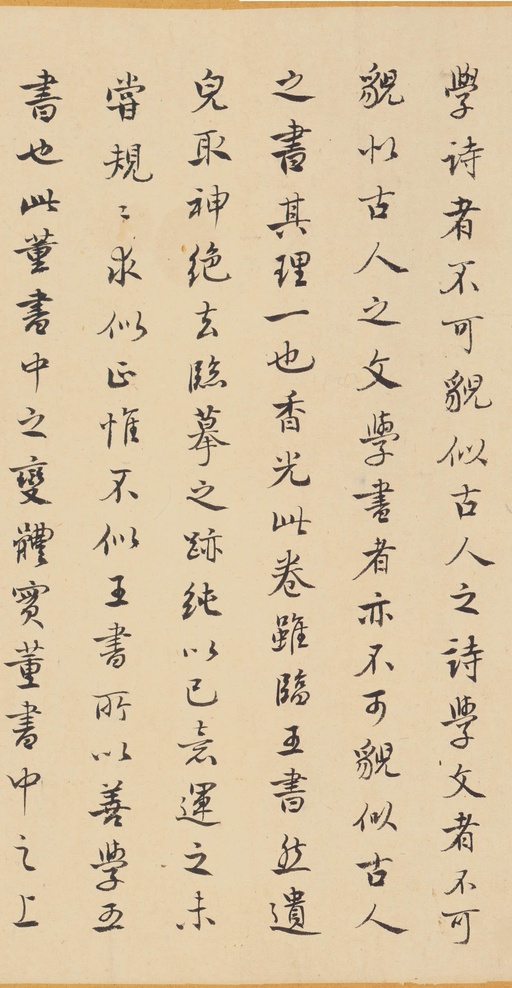 學詩者不可貌似古人之詩學文者不可
貌似古人之文學書者亦不可貌似古人
之書其理一也香光此卷雖臨王書然遺
皃取神絶去臨摹之跡純以己意運之未
嘗規〻求似正惟不似王書所以善學王
書也此董書中之變體實董書中之上